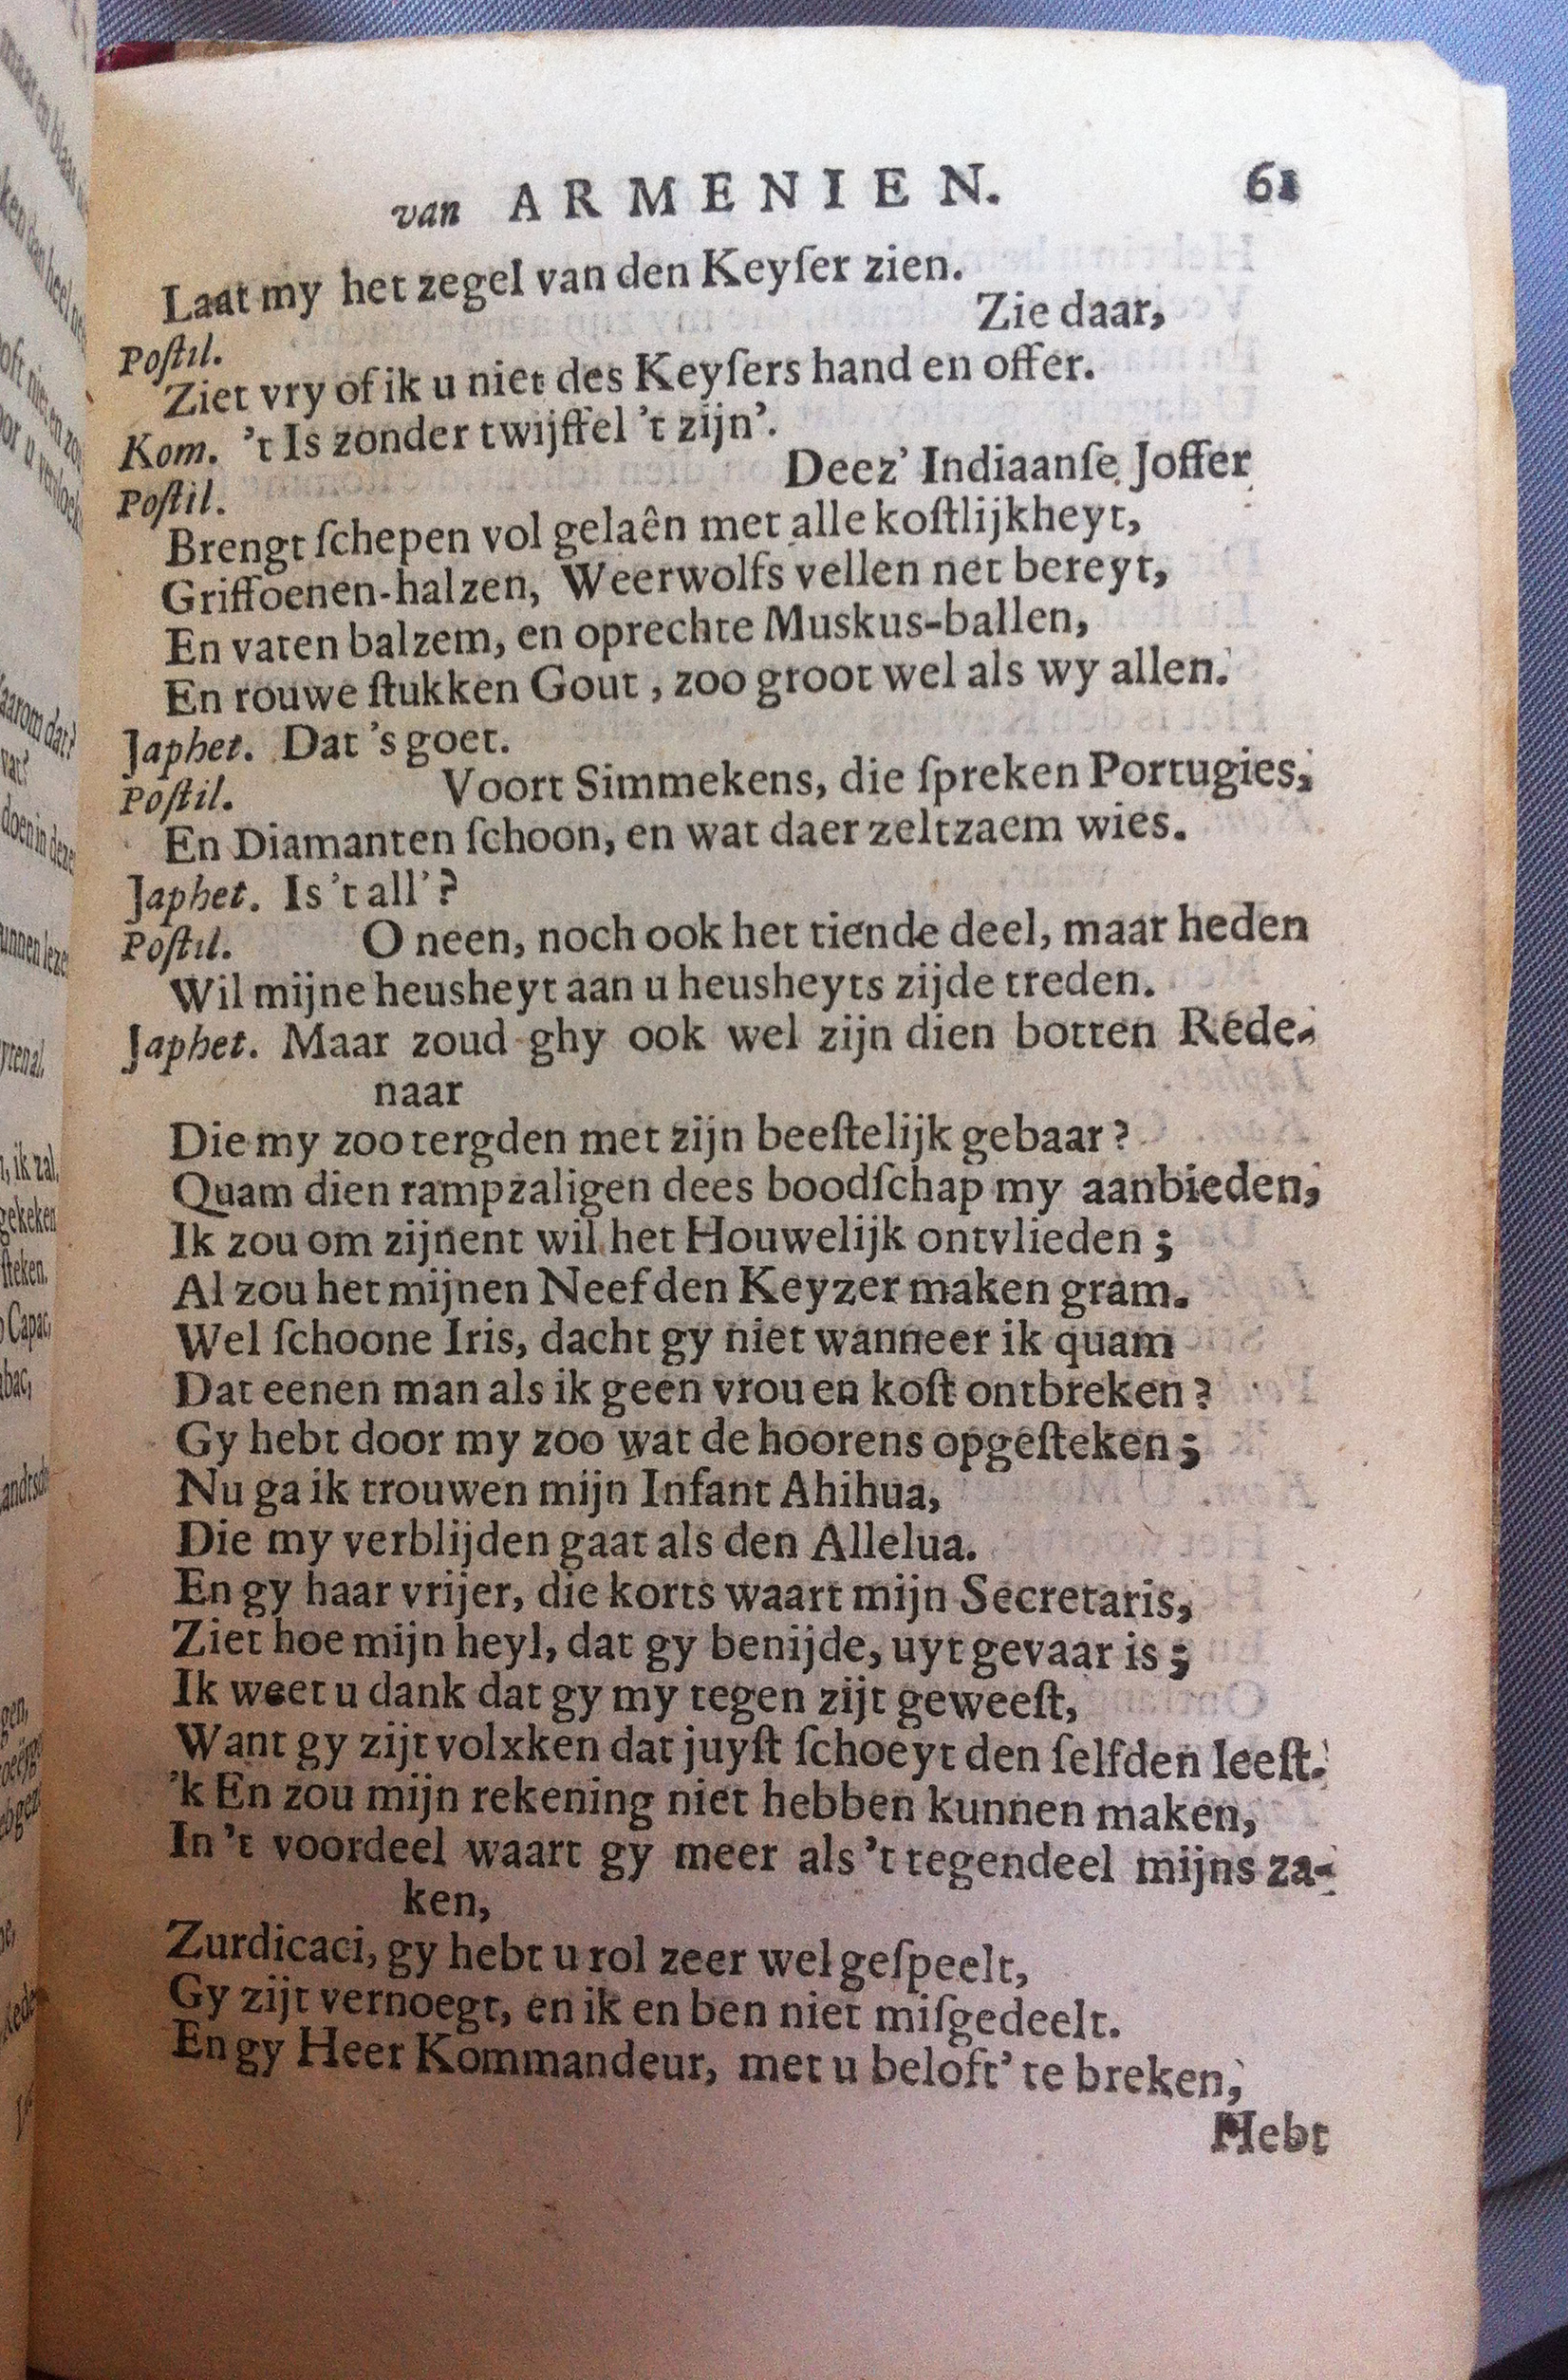 van ARMENIEN. 61
Laat my het zegel van den Keyſer zien.
Zie daar,
Poſtil.
Ziet vry of ik u niet des Keyſers hand en offer.
Kom. 't Is zonder twijffel 't zijn'.
Deez' Indiaanſe Joffer
Poſtil.
Brengt ſchepen vol gelaên met alle koſtlijkheyt,
Griffoenen-halzen, Weerwolfs vellen net bereyt,
En vaten balzem, en oprechte Muskus-ballen,
En rouwe ſtukken Gout, zoo groot wel als wy allen.
Japhet. Dat 's goet.
Poſtil. Voort Simmekens, die ſpreken Portugies,
En Diamanten ſchoon, en wat daer zeltzaem wies.
Japhet. Is 't all'?
Poſtil. O neen, noch ook het tiende deel, maar heden
Wil mijne heusheyt aan u heusheyts zijde treden.
Japhet. Maar zoud ghy ook wel zijn dien botten Rede-
naar
Die my zoo tergden met zijn beeſtelijk gebaar?
Quam dien rampzaligen dees boodſchap my aanbieden,
Ik zou om zijnent wil het Houwelijk ontvlieden;
Al zou het mijnen Neef den Keyzer maken gram.
Wel ſchoone Iris, dacht gy niet wanneer ik quam
Dat eenen man als ik geen vrou en koſt ontbreken?
Gy hebt door my zoo wat de hoorens opgeſteken;
Nu ga ik trouwen mijn Infant Ahihua,
Die my verblijden gaat als den Allelua.
En gy haar vrijer, die korts waart mijn Secretaris,
Ziet hoe mijn heyl, dat gy benijde, uyt gevaar is;
Ik weet u dank dat gy my tegen zijt geweeſt,
Want gy zijt volxken dat juyſt ſchoeyt den ſelfden leeſt.
'k En zou mijn rekening niet hebben kunnen maken,
In 't voordeel waart gy meer als 't tegendeel mijns za-
ken,
Zurdicaci, gy hebt u rol zeer wel geſpeelt,
Gy zijt vernoegt, en ik en ben niet miſgedeelt.
En gy Heer Kommandeur, met u beloft' te breken,
Hebt